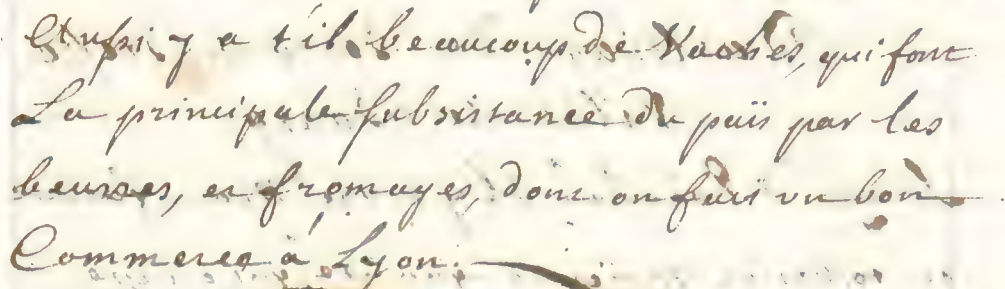 Aussi y a t'il beaucoup de Vaches, qui font
La principale subsistance du païs par les
beurres, et fromages, dont on fait un bon
Commerce à Lyon.